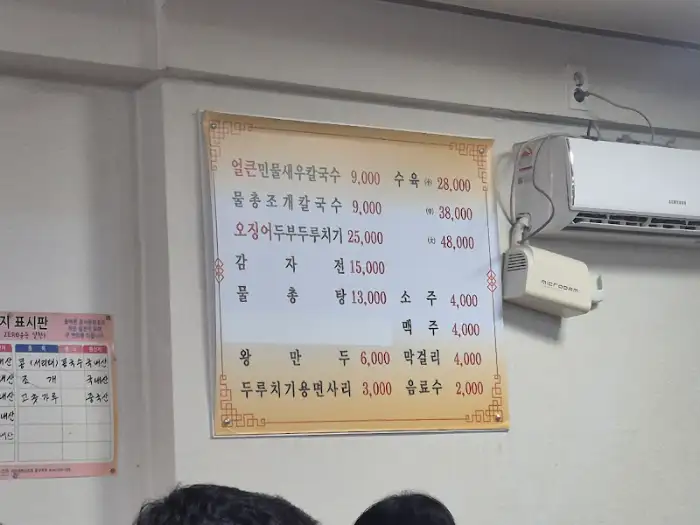 얼큰민물새우칼국수 9,000 수육 ㈜ 28,000
물총조개칼국수 9,000 ㈜ 38,000
오징어두부두루치기 25,000 ㈹ 48,000
감자전 15,000
물총탕 13,000 소주 4,000
맥주 4,000
왕만두 6,000 막걸리 4,000
두루치기용면사리 3,000 음료수 2,000
SAMSUNG
microdam
지 표시판
콩(서리태) 콩국수 국내산
조개 국내산
고춧가루 중국산